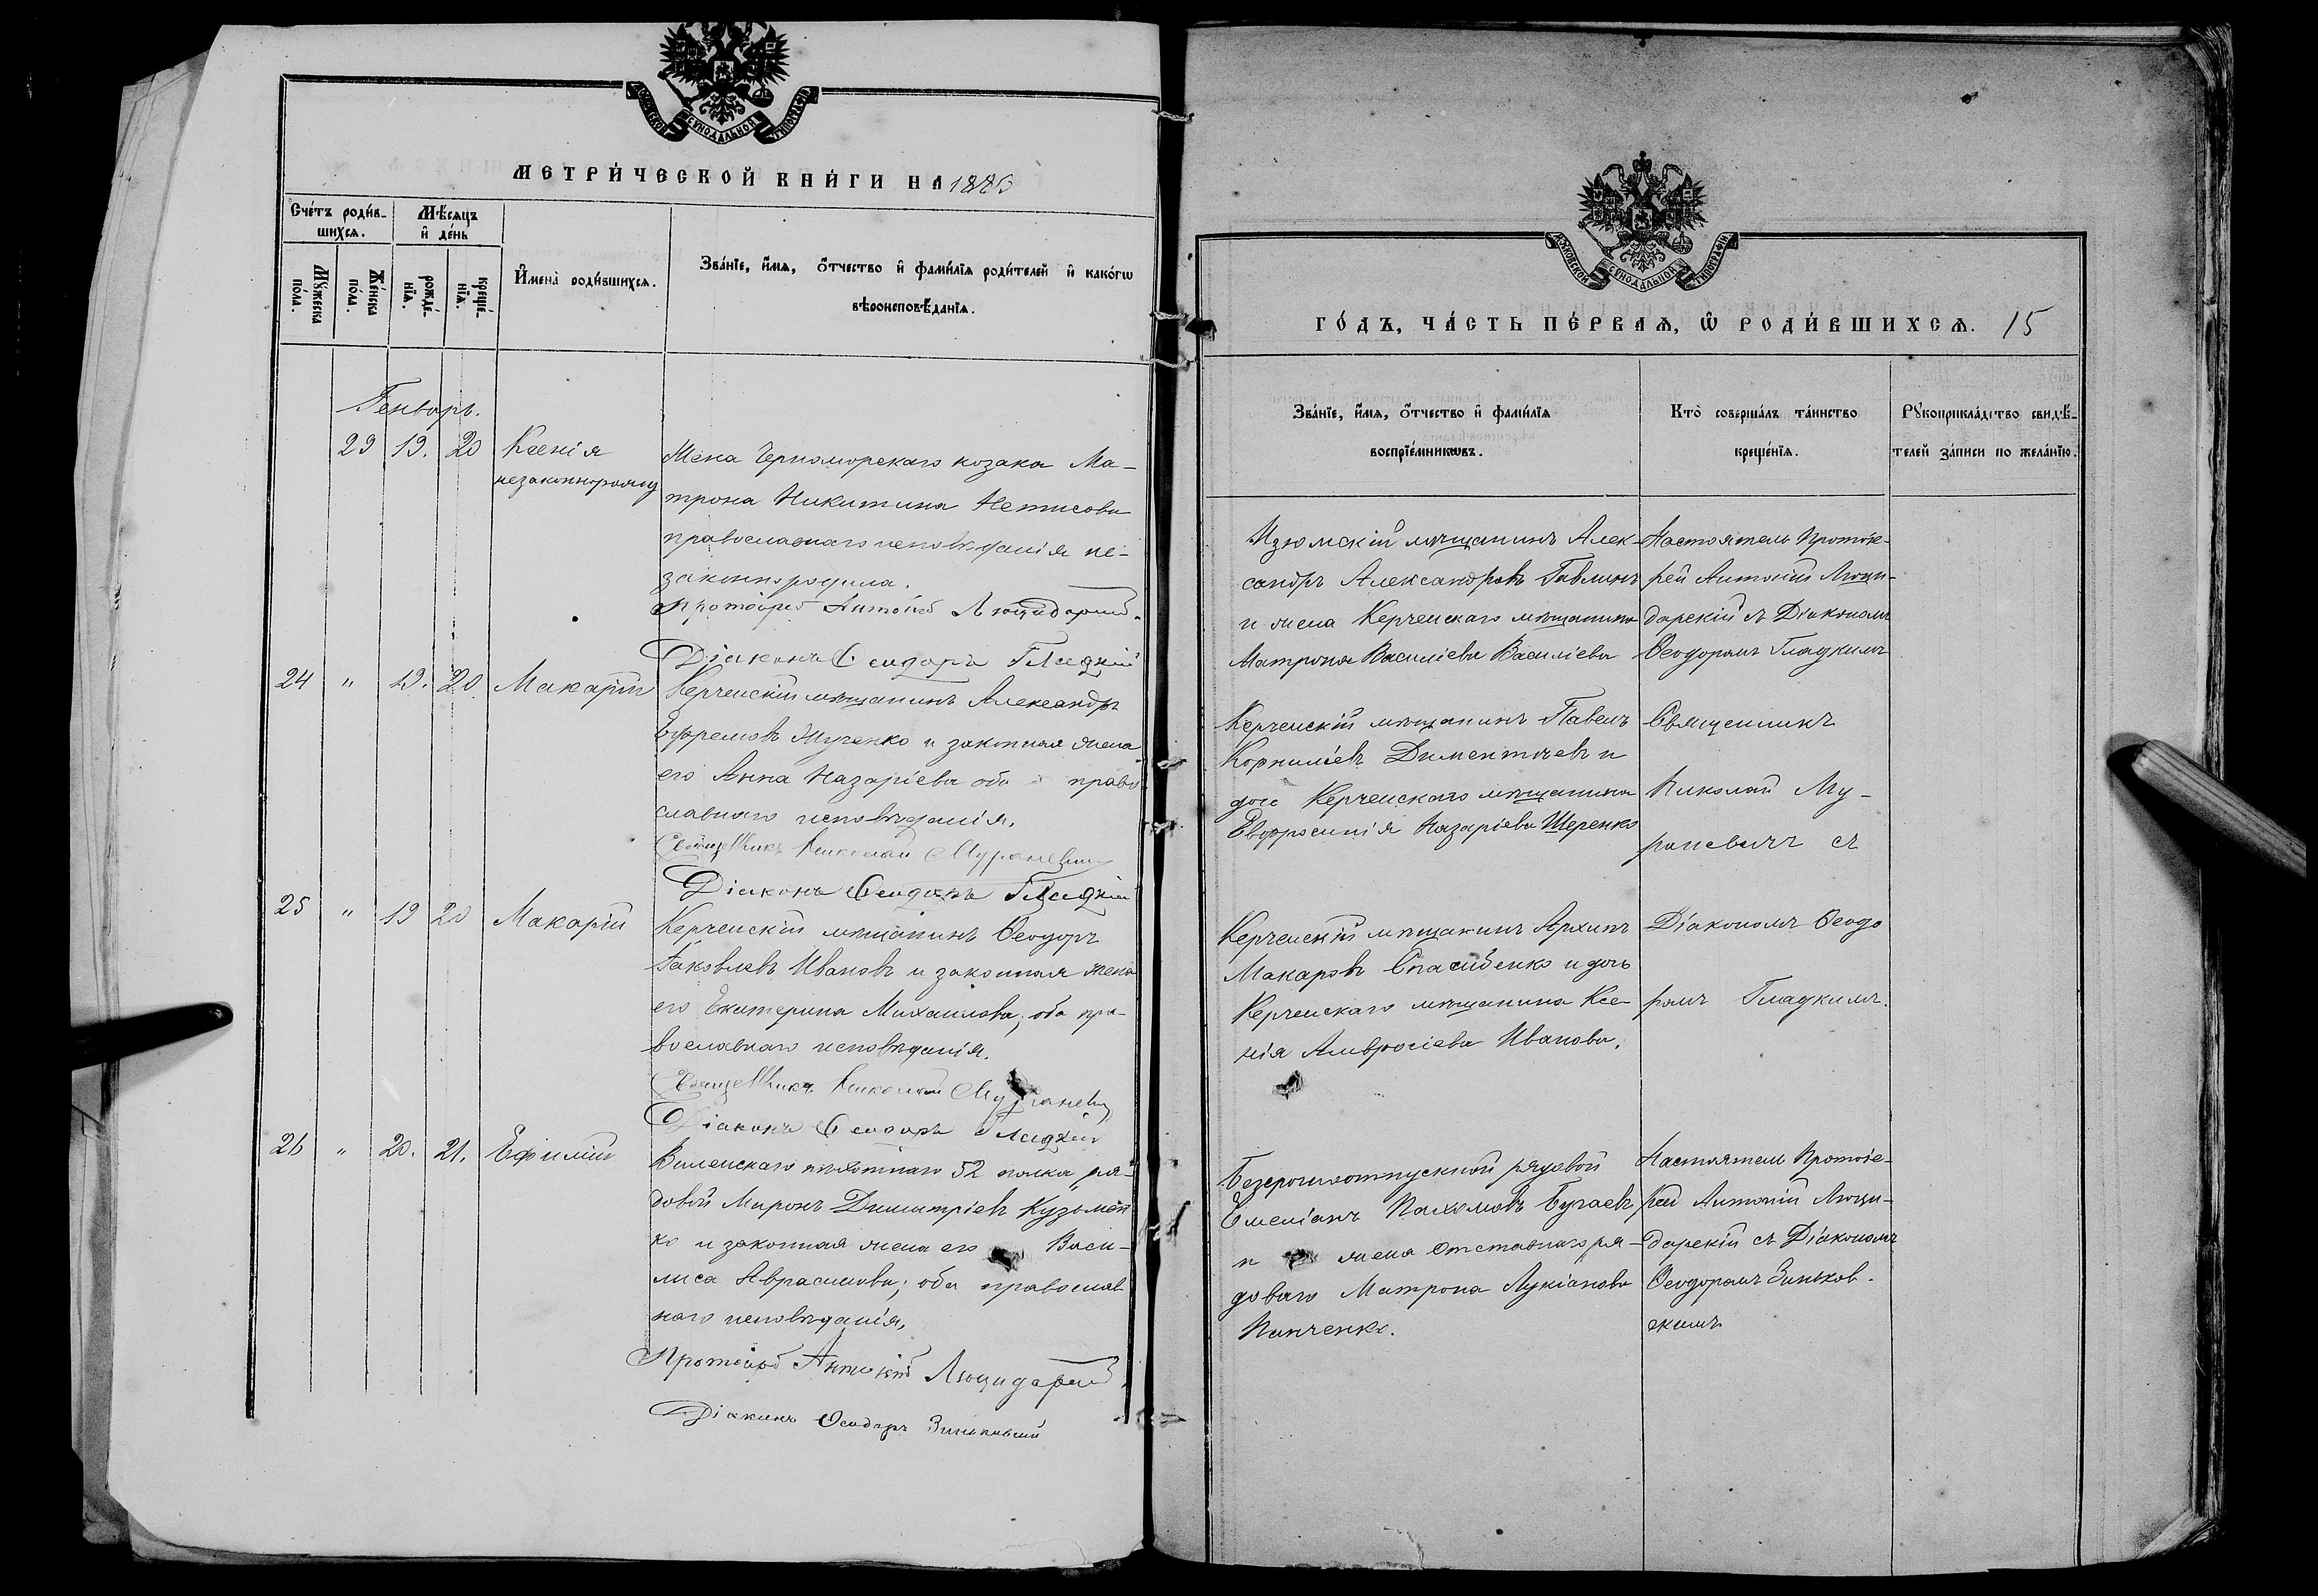 МОСКОВСКОЙ СѴНОДАЛЬНОЙ ТИПОГРАФІИ
МЕТРИ́ЧЕСКОЙ КНИ́ГИ НА
Сче́тъ роди́в-
шихсѧ.
Мѣ́сѧцъ
и҆ де́нь
Мꙋ́жеска
по́ла.
Же́нска
по́ла.
рожде́-
нїѧ.
креще́-
нїѧ.
И҆мена̀ роди́вшихсѧ.
Зва́нїе, и҆́мѧ, ѻ҆́тчество и҆ фами́лїѧ роди́телей и҆ како́гѡ
вѣроисповѣ́данїѧ.
Генварь.
29 19. 20 Ксенія
незаконнорожд
Жена Черноморскаго козака Ма-
трона Никитина Нетисова
православнаго исповѣданія не-
законнородила.
Протоіерей Антоній Люцидарскій.
Діаконъ Ѳеодоръ Гладкій
24 " 19. 20. Макарій
Керченскій мѣщанинъ Александръ
Ефремовъ Жученко и законная жена
его Анна Назаріева оба право
славнаго исповѣданія.
Священникъ Николай Мураневичъ
Діаконъ Ѳеодоръ Гладкій
25 " 19 20 Макарій
Керченскій мѣщанинъ Ѳеодоръ
Іаковлевъ Ивановъ и законная жена
его Екатерина Михаилова; оба пра-
вославнаго исповѣданія.
Священникъ Николай Мураневичъ
Діаконъ Ѳеодоръ Гладкій
26 " 20. 21. Ефимій
Виленскаго пѣхотнаго 52 полка ря-
довой Миронъ Димитріевъ Кузьмен
ко и законная жена его Васи-
лиса Аврамова; оба православ
наго исповѣданія,
Протоіерей Антоній Люцидарскій
Діаконъ Ѳеодоръ Зиньковскій
МОСКОВСКОЙ СѴНОДАЛЬНОЙ ТИПОГРАФІИ
ГО́ДЪ, ЧА́СТЬ ПЕ́РВАѦ, Ѽ РОДИ́ВШИХСѦ. 15
Зва́нїе, и҆́мѧ, ѻ҆́тчество и҆ фами́лїѧ
воспрїе́мникѡвъ.
Кто̀ соверша́лъ та́инство
креще́нїѧ.
Рꙋкоприкла́дство свидѣ́-
телей за́писи по жела́нїю.
Изюмскій мѣщанинъ Алек-
сандръ Александровъ Гавлинъ
и жена Керченскаго мѣщанина
Матрона Василіева Василіева
Настоятель Протоіе-
рей Антоній Люци-
дарскій съ Діакономъ
Ѳеодоромъ Гладкимъ
Керченскій мѣщанинъ Павелъ
Корниліевъ Диментіевъ и
дочь Керченскаго мѣщанина
Евфросинія Назаріева Шеренко
Священникъ
Николай Му-
раневичъ съ
Керченскій мѣщанинъ Архипъ
Макаровъ Спасибенко и дочь
Керченскаго мѣщанина Ксе-
нія Амвросіева Иванова.
Діакономъ Ѳеодо
ромъ Гладкимъ.
Безсрочноотпускной рядовой
Емеліанъ Пахомовъ Бугаевъ
и жена отставнаго ря-
доваго Матрона Лукіанова
Панченко.
Настоятель Протоіе-
рей Антоній Люци-
дарскій съ Діакономъ
Ѳеодоромъ Зиньков-
скимъ